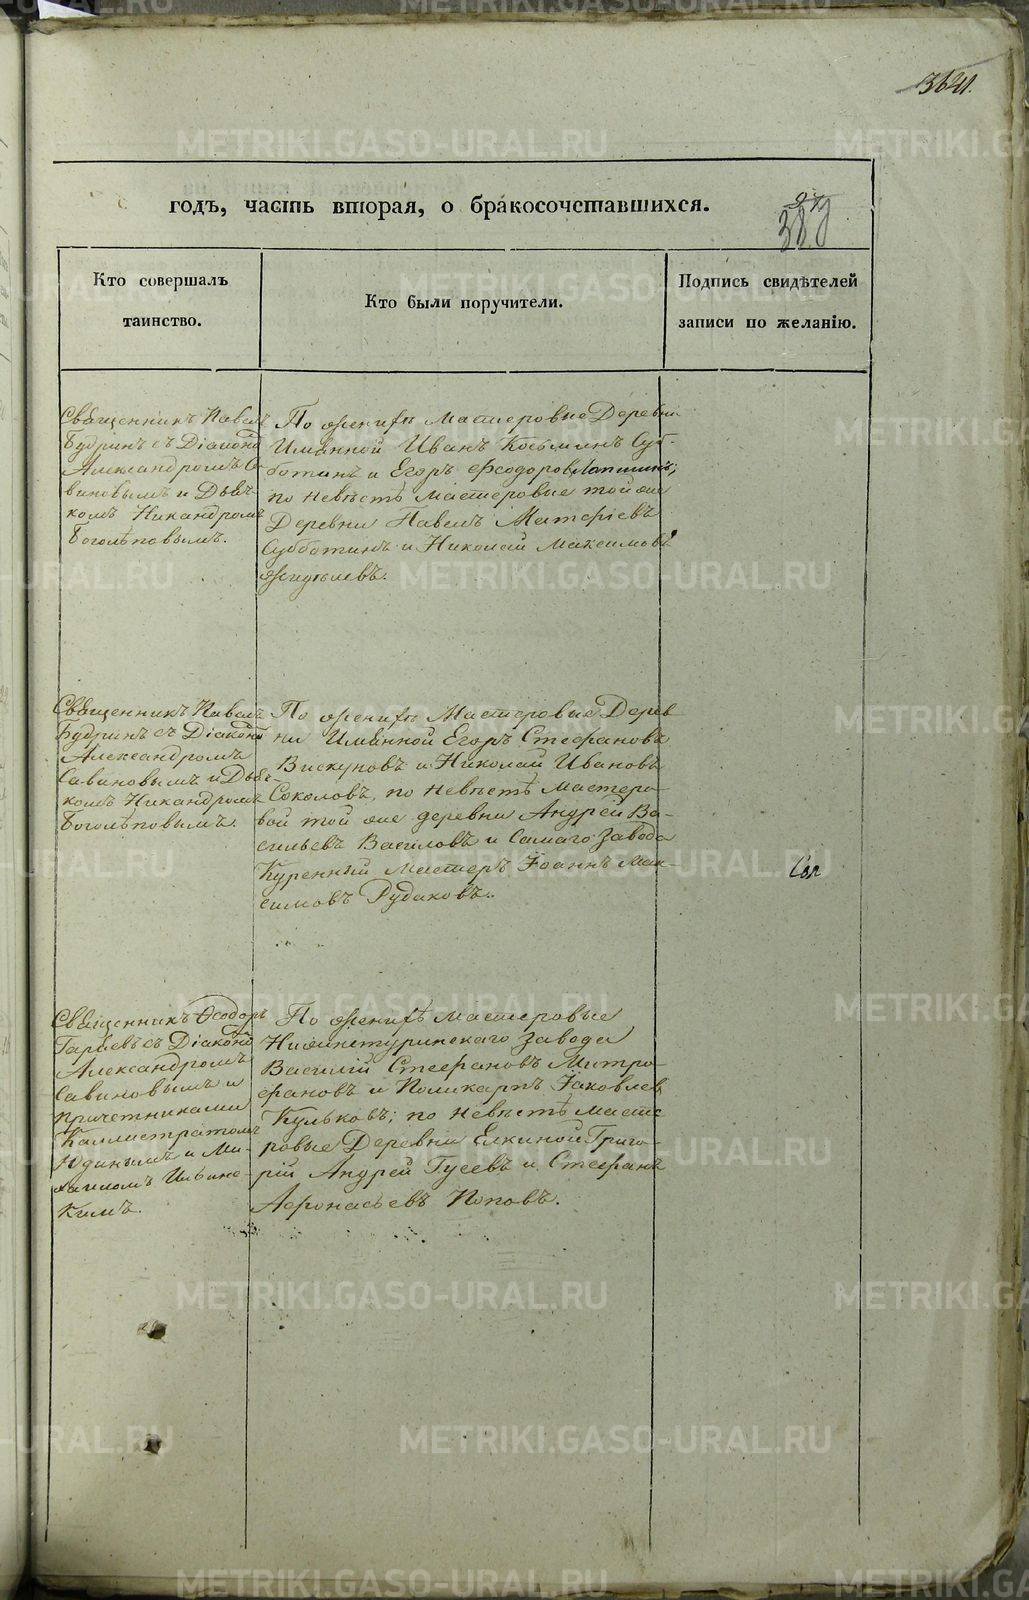 364.
годъ, часть вторая, о бракосочетавшихся.
Кто совершалъ
таинство.
Кто были поручители.
Подпись свидѣтелей
записи по желанію.
Священникъ Павелъ
Будринъ съ Діакономъ
Александромъ Са-
виновымъ и Дьяч-
комъ Никандромъ
Боголѣповымъ.
По женихѣ Мастеровые Деревни
Имянной Иванъ Косьминъ Суб-
ботинъ и Егоръ Ѳеодоровъ Лапшинъ;
по невѣстѣ Мастеровые той же
Деревни Павелъ Матѳіевъ
Субботинъ и Николай Максимовъ
Жиделевъ.
Священникъ Павелъ
Будринъ съ Діакономъ
Александромъ
Савиновымъ и Дьяч-
комъ Никандромъ
Боголѣповымъ.
По женихѣ Мастеровые Дерев-
ни Имянной Егоръ Стефановъ
Вискуновъ и Николай Ивановъ
Соколовъ, по невѣстѣ Мастеро-
вой той же деревни Андрей Ва-
сильевъ Вагиловъ и Самаго Завода
Куренный Мастеръ Іоаннъ Мак-
симовъ Рудаковъ.
Священникъ Ѳеодоръ
Гаряевъ съ Діакономъ
Александромъ
Савиновымъ и
причетниками
Каллистратомъ
Юдинымъ и Ми-
хаиломъ Ильинс-
кимъ.
По женихѣ мастеровые
Нижнетуринскаго Завода
Василій Стефановъ Митро-
фановъ и Поликарпъ Іаковлевъ
Кульковъ; по невѣстѣ масте-
ровые Деревни Елкиной Григо-
рій Андрей Гусевъ и Стефанъ
Афонасьевъ Поповъ.
METRIKI.GASO-URAL.RU